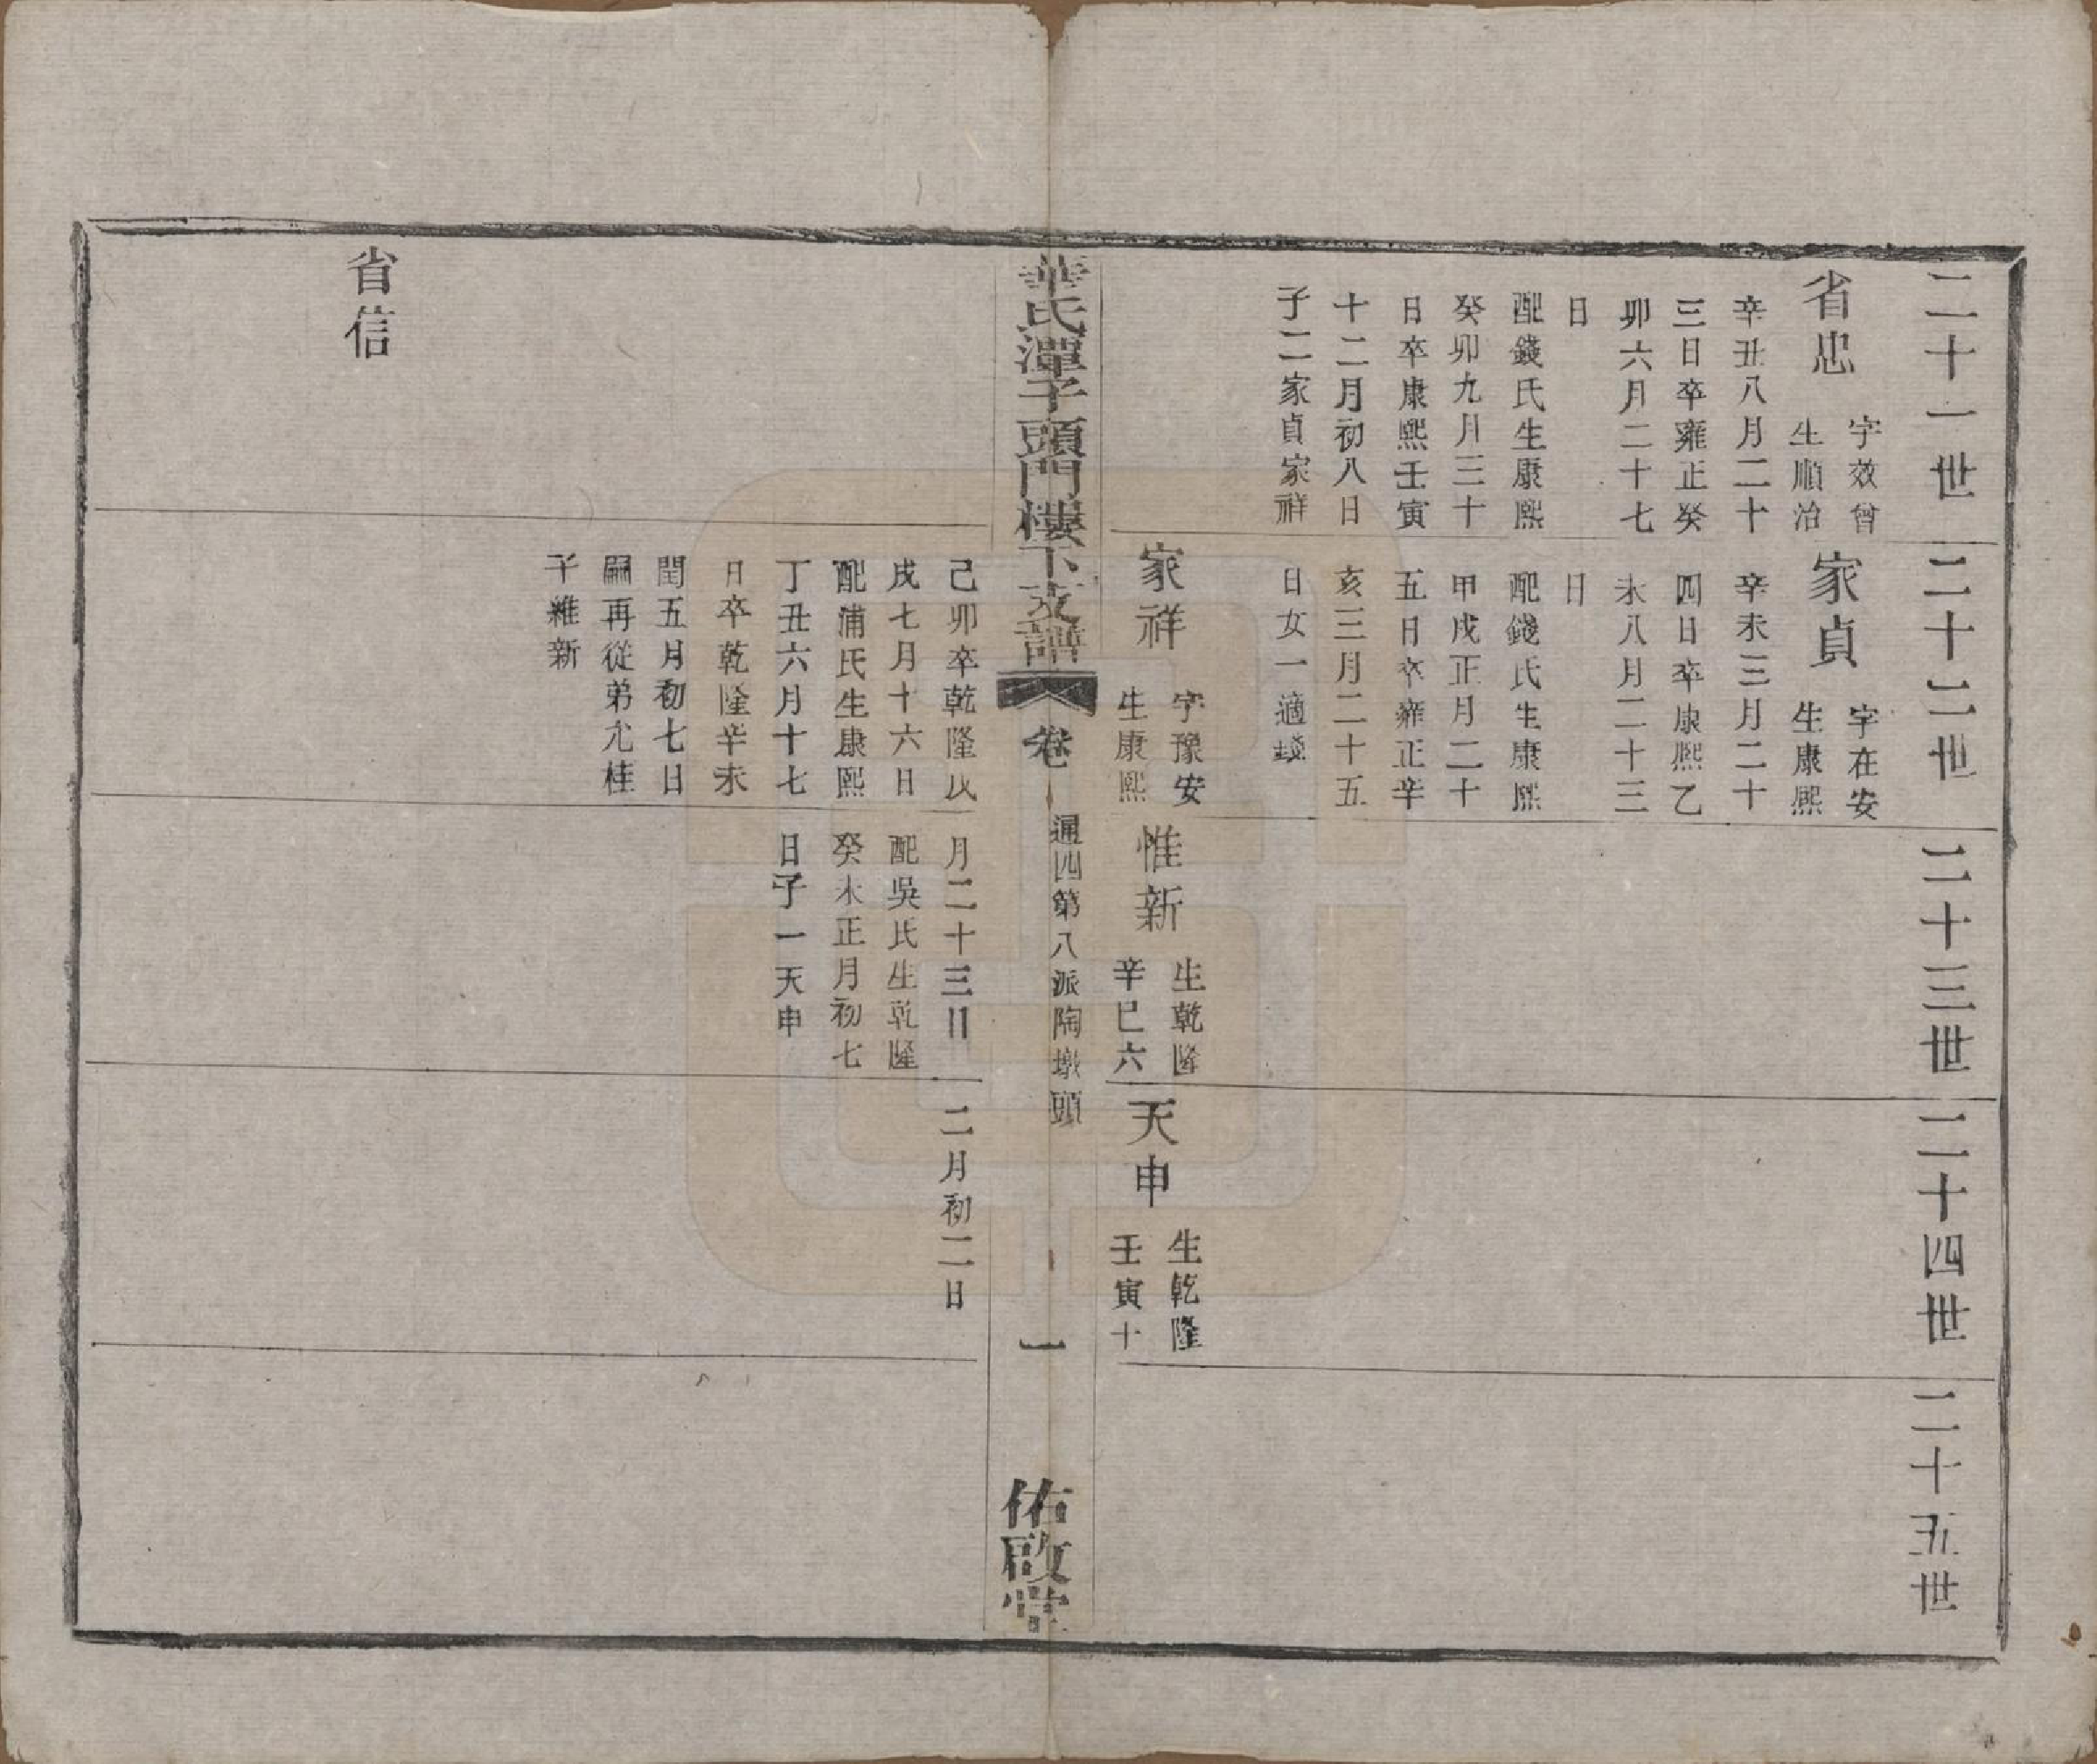 二十一世
二十二世
二十三世
二十四世
二十五世
省忠
字效曾
生順治
辛丑八月二十
三日卒雍正癸
卯六月二十七
日
配錢氏生康熙
癸卯九月三十
日卒康熙壬寅
十二月初八日
子二家貞家祥
家貞
字在安
生康熙
辛未三月二十
四日卒康熙乙
未八月二十三
日
配錢氏生康熙
甲戌正月二十
五日卒雍正辛
亥三月二十五
日女一適錢
家祥
字豫安
生康熙
惟新
生乾隆
辛巳六
天申
生乾隆
壬寅十
華氏潭子頭門樓下支譜
卷
通四第八派陶墩頭
一
佑啟堂
己卯卒乾隆戊
戌七月十六日
配浦氏生康熙
丁丑六月十七
日卒乾隆辛未
閏五月初七日
嗣再從弟允桂
子維新
月二十三日
配吳氏生乾隆
癸未正月初七
日子一天申
二月初二日
省信